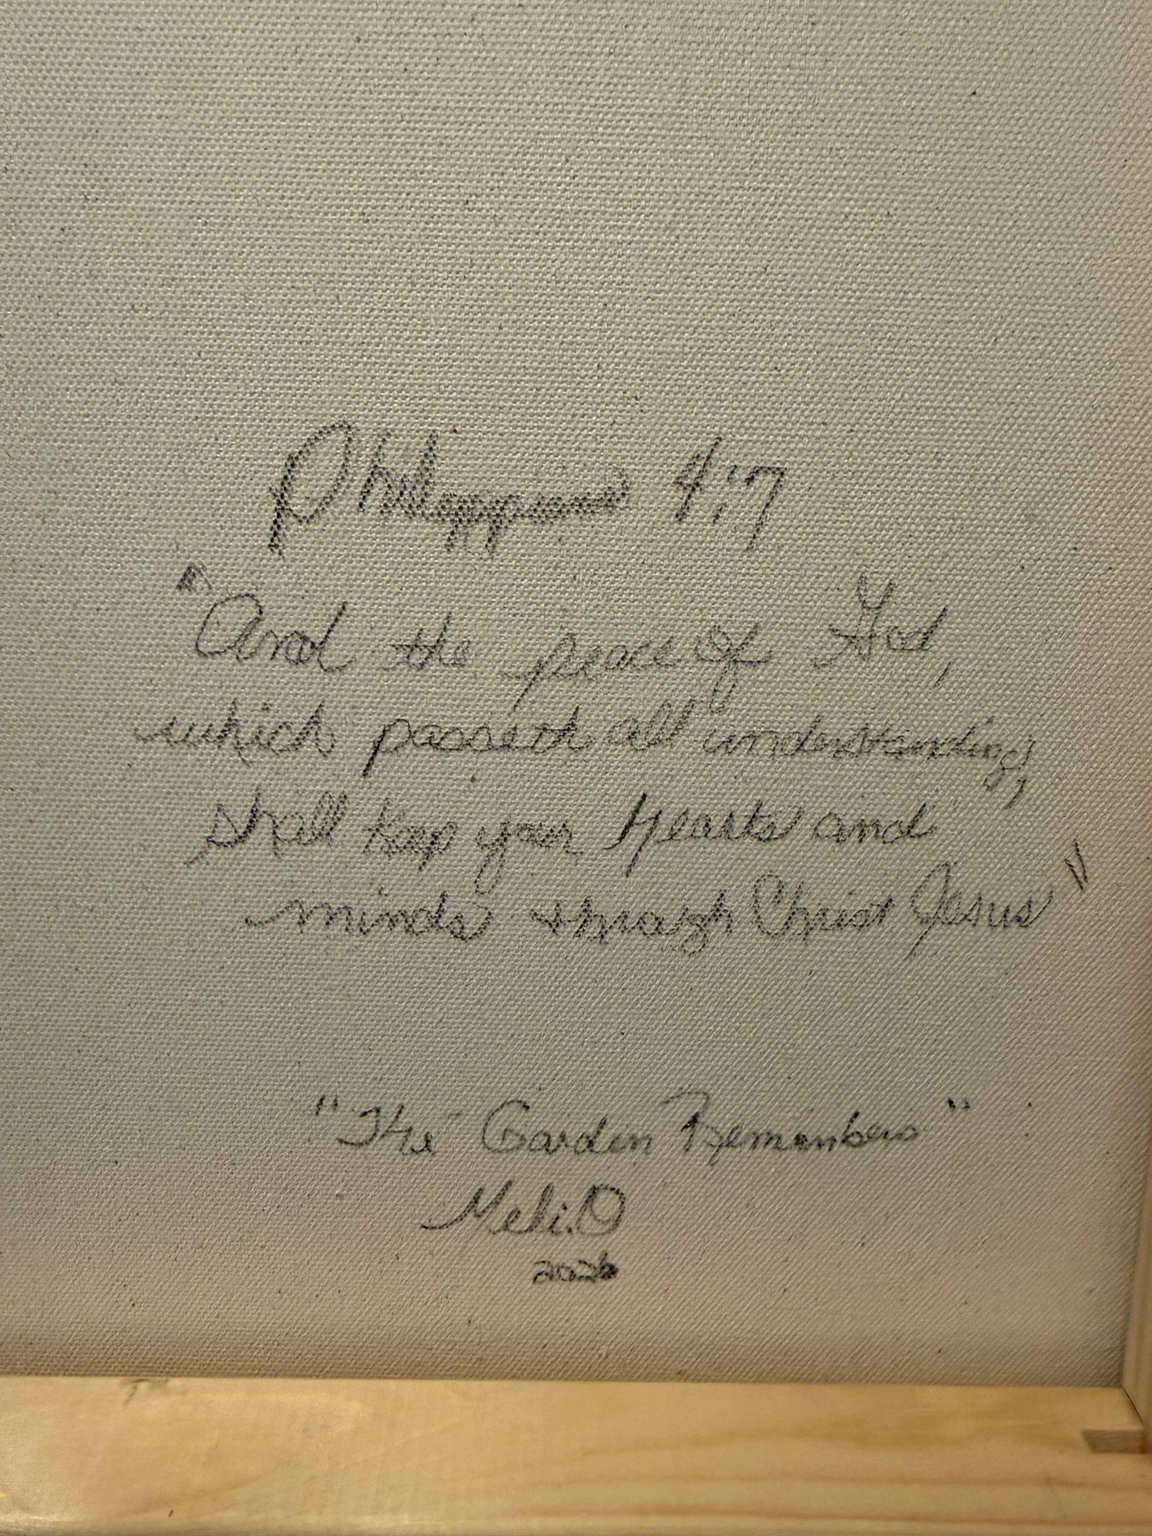 Philippians 4:7
"And the peace of God,
which passeth all understanding,
shall keep your hearts and
minds through Christ Jesus"
"The Garden Remembers"
Meli.D
2026